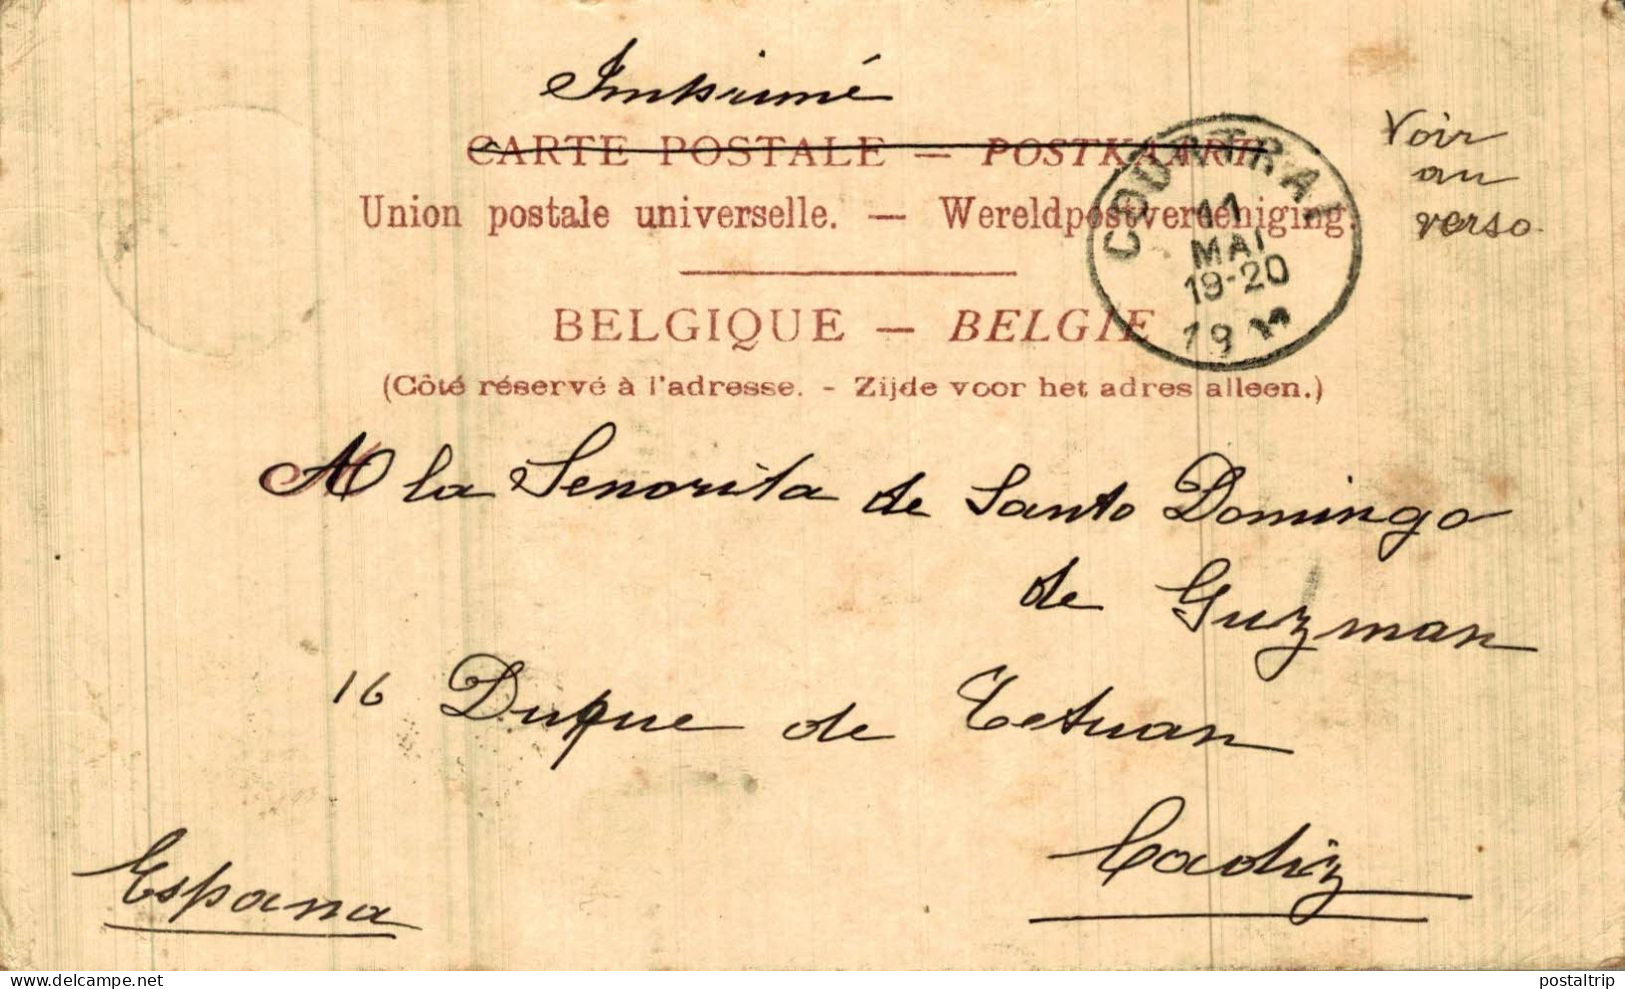 Imprimé
CARTE POSTALE — POSTKAART
Union postale universelle. — Wereldpostvereeniging.
BELGIQUE — BELGIE
(Côté réservé à l'adresse. - Zijde voor het adres alleen.)
COURTRAI
11
MAI
19-20
Voir
au
verso.
A la Senorita de Santo Domingo
de Guzman
16 Duque de Tetuan
Cadiz
Espana
postaltrip